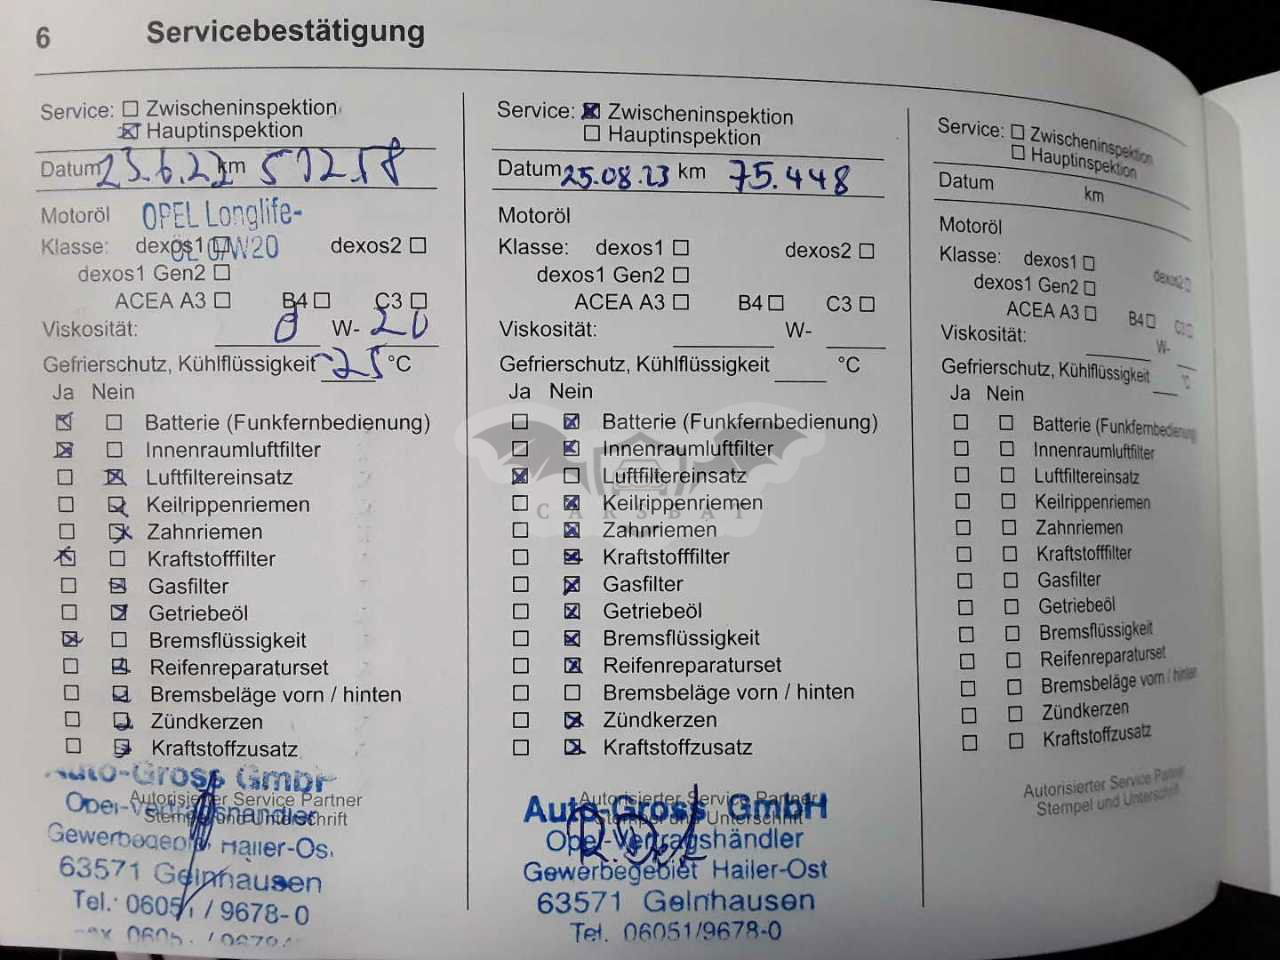 6 Servicebestätigung
Service: Zwischeninspektion
Hauptinspektion
Datum 23.6.22 km 51258
Motoröl OPEL Longlife-
Klasse: dexos1 dexos2
ÖL 0/W20
dexos1 Gen2
ACEA A3 B4 C3
Viskosität: 0 W- 20
Gefrierschutz, Kühlflüssigkeit -25 °C
Ja Nein
Batterie (Funkfernbedienung)
Innenraumluftfilter
Luftfiltereinsatz
Keilrippenriemen
Zahnriemen
Kraftstofffilter
Gasfilter
Getriebeöl
Bremsflüssigkeit
Reifenreparaturset
Bremsbeläge vorn / hinten
Zündkerzen
Kraftstoffzusatz
Auto-Gross GmbH
Autorisierter Service Partner
Opel-Vertragshändler
Stempel und Unterschrift
Gewerbegebiet Hailer-Os.
63571 Gelnhausen
Tel. 06051/9678-0
Service: Zwischeninspektion
Hauptinspektion
Datum 25.08.23 km 75.448
Motoröl
Klasse: dexos1 dexos2
dexos1 Gen2
ACEA A3 B4 C3
Viskosität: W-
Gefrierschutz, Kühlflüssigkeit °C
Ja Nein
Batterie (Funkfernbedienung)
Innenraumluftfilter
Luftfiltereinsatz
Keilrippenriemen
CARSBAT
Zahnriemen
Kraftstofffilter
Gasfilter
Getriebeöl
Bremsflüssigkeit
Reifenreparaturset
Bremsbeläge vorn / hinten
Zündkerzen
Kraftstoffzusatz
Autorisierter Service Partner
Auto-Gross GmbH
Stempel und Unterschrift
Opel-Vertragshändler
Gewerbegebiet Hailer-Ost
63571 Gelnhausen
Tel. 06051/9678-0
Service: Zwischeninspektion
Hauptinspektion
Datum km
Motoröl
Klasse: dexos1 dexos2
dexos1 Gen2
ACEA A3 B4 C3
Viskosität: W-
Gefrierschutz, Kühlflüssigkeit °C
Ja Nein
Batterie (Funkfernbedienung)
Innenraumluftfilter
Luftfiltereinsatz
Keilrippenriemen
Zahnriemen
Kraftstofffilter
Gasfilter
Getriebeöl
Bremsflüssigkeit
Reifenreparaturset
Bremsbeläge vorn / hinten
Zündkerzen
Kraftstoffzusatz
Autorisierter Service Partner
Stempel und Unterschrift